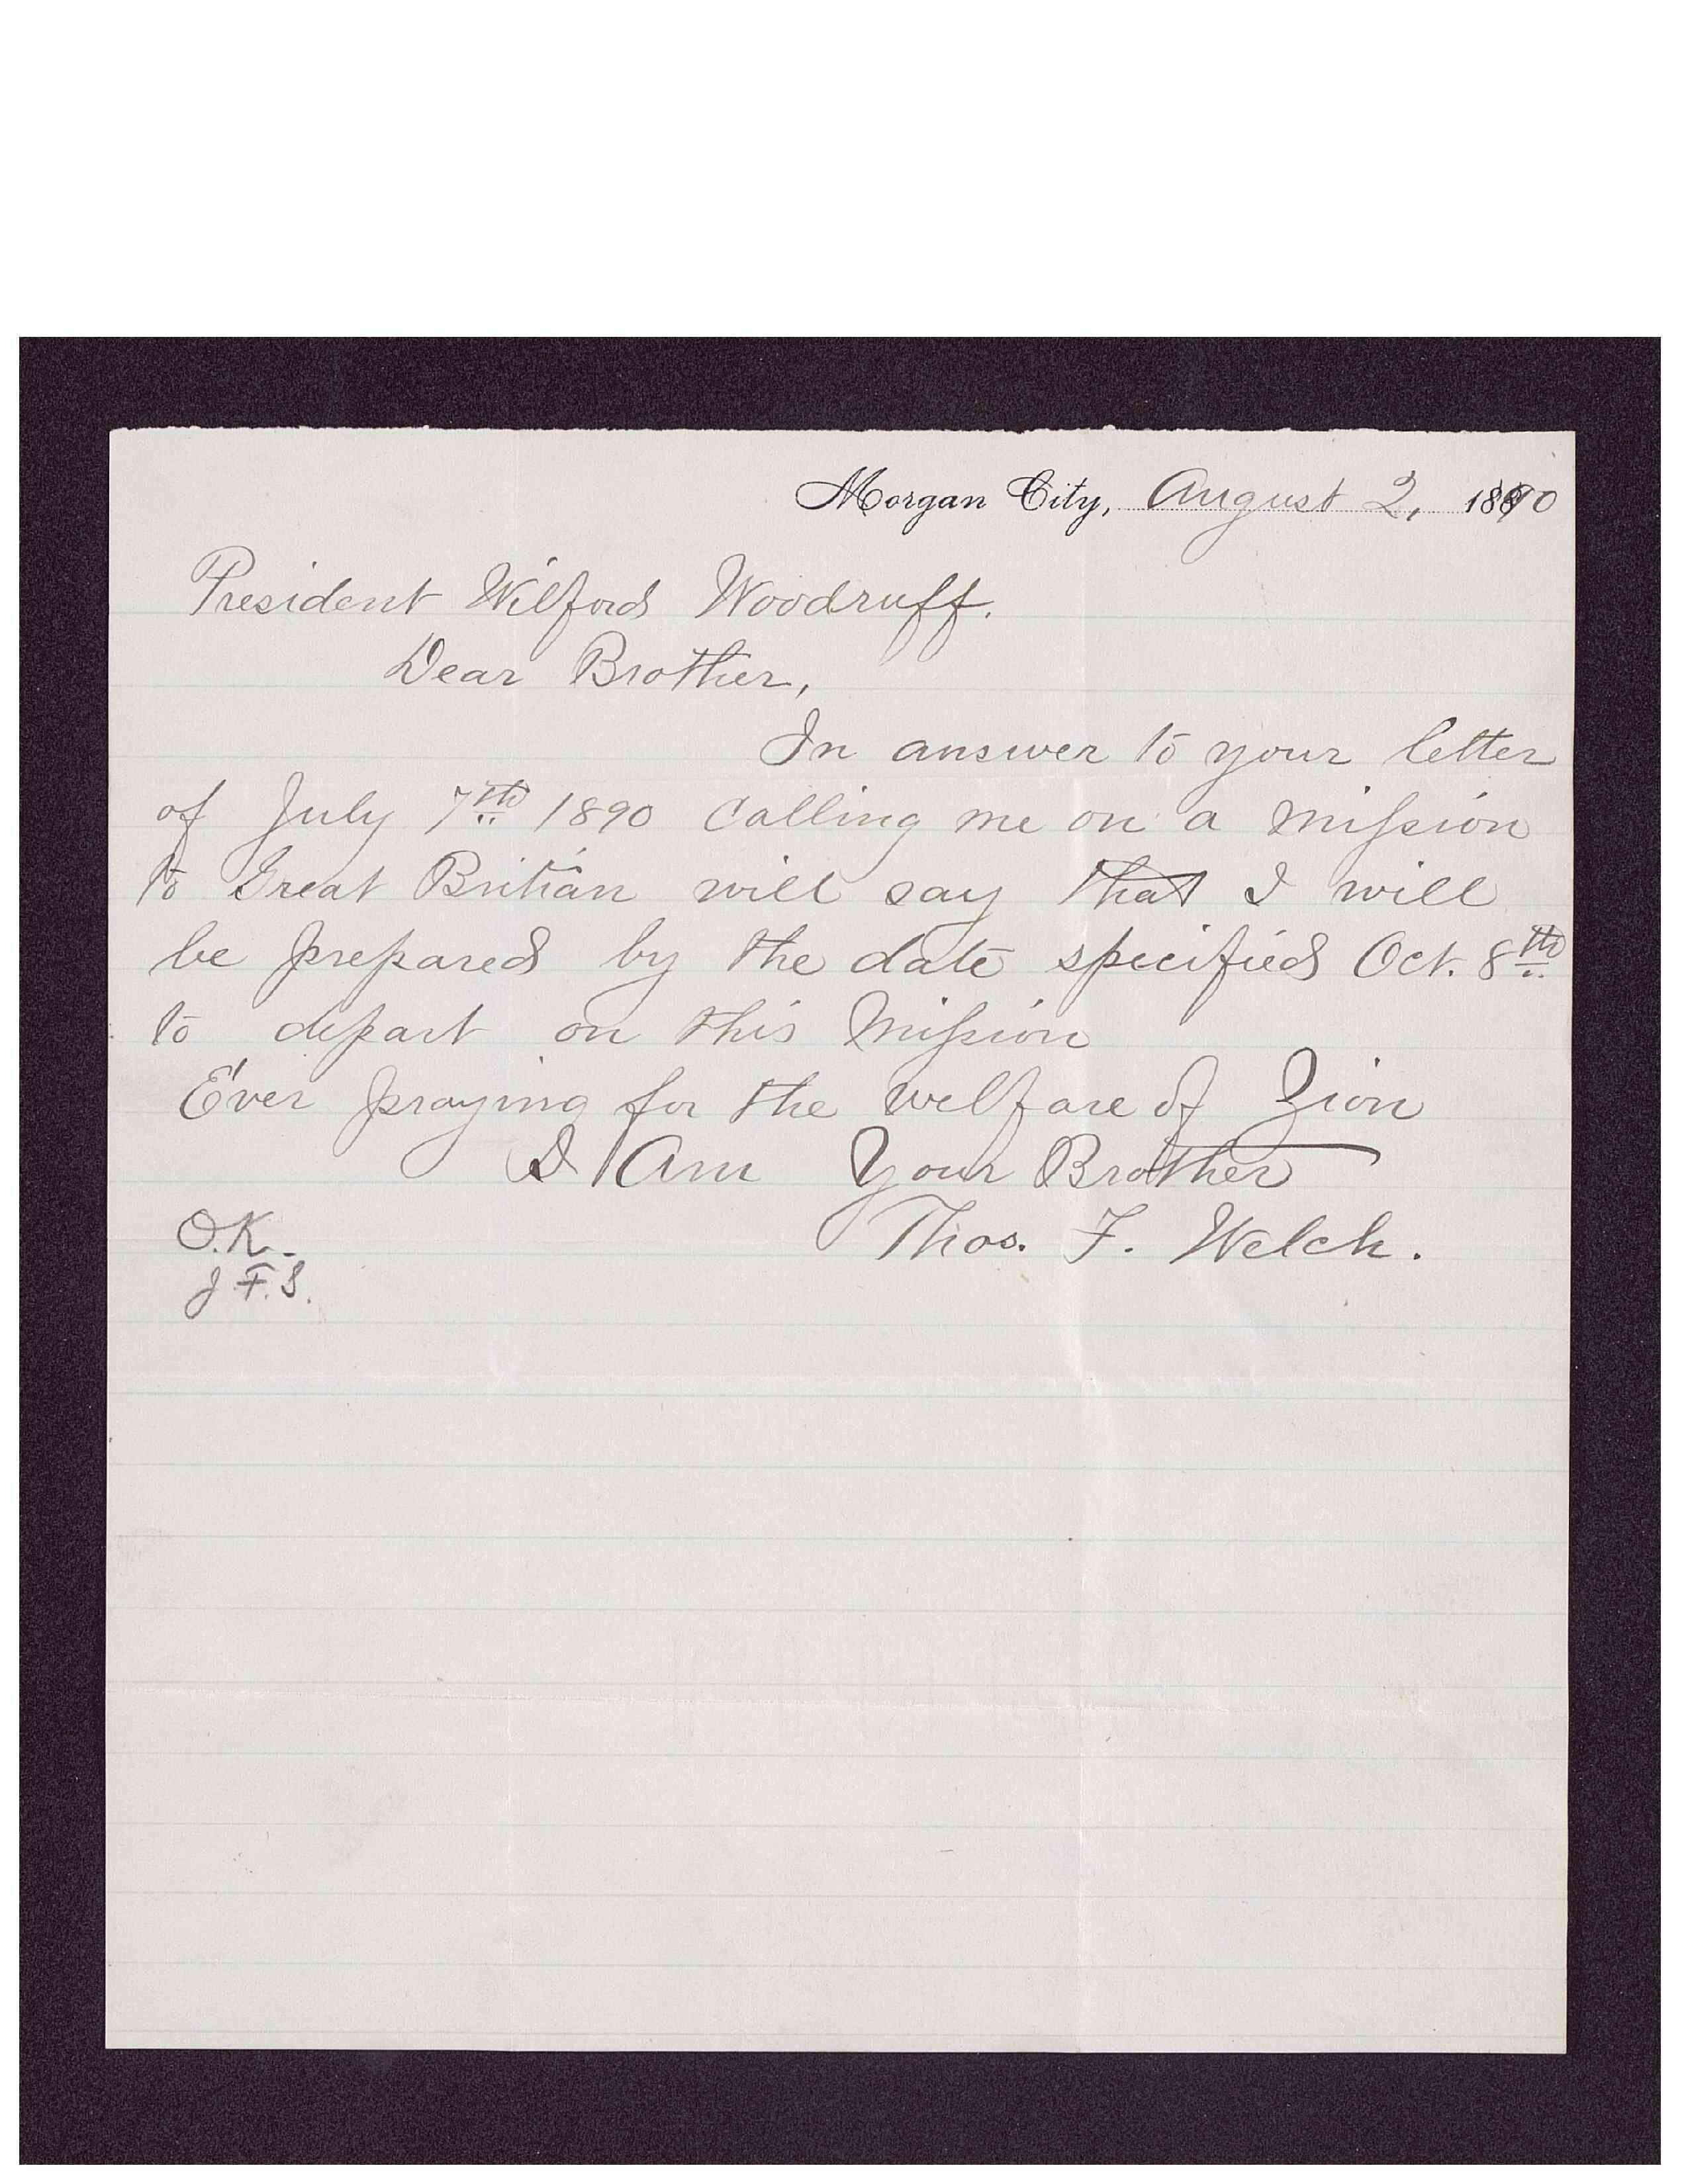 Morgan City, August 2, 1890
President Wilford Woodruff.
Dear Brother,
In answer to your letter
of July 7th 1890 Calling me on a mission
to Great Britian will say that I will
be prepared by the date specified Oct. 8th
to depart on this Mission
Ever praying for the welfare of Zion
I Am Your Brother
Thos. F. Welch.
O.K.
J.F.S.